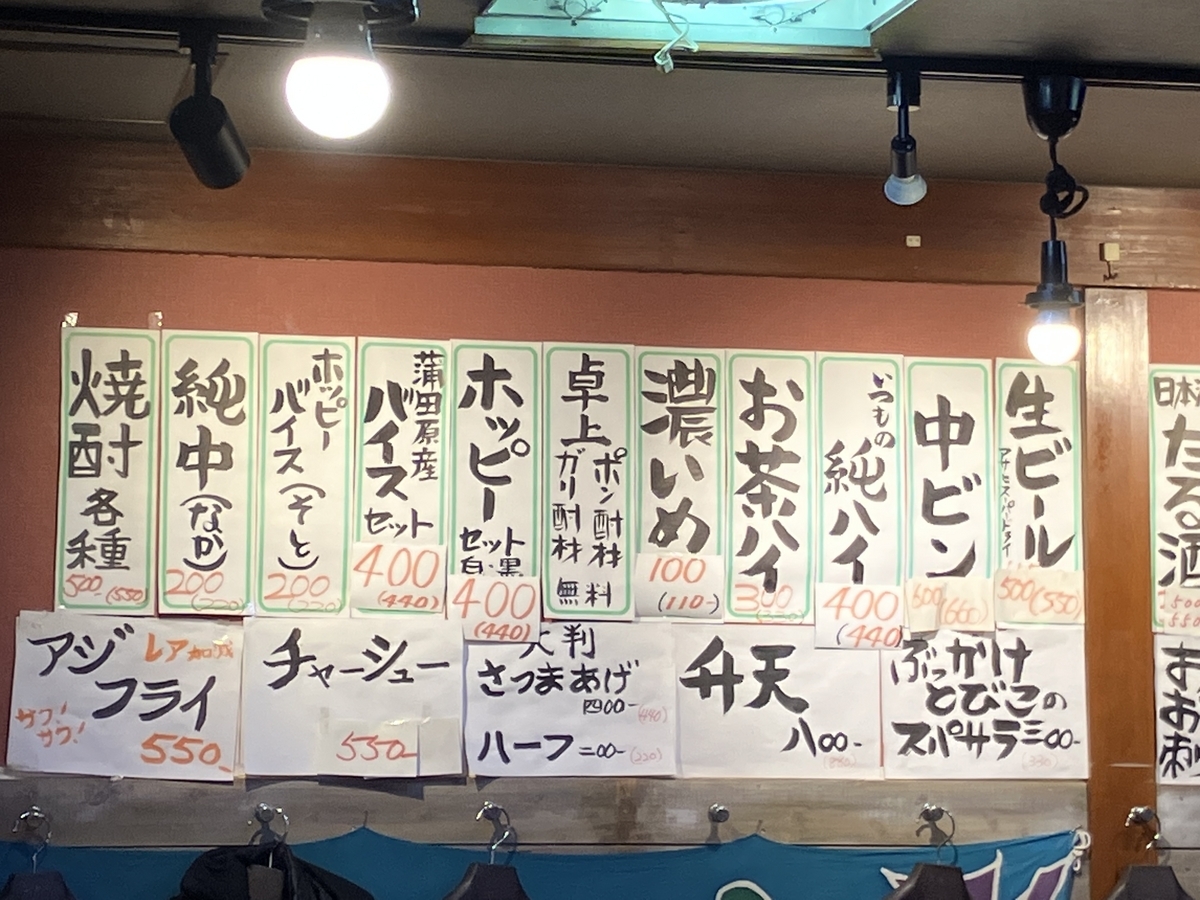 焼酎
各種
500 (550)
純中(なか)
200
(220)
ホッピー
バイス(そと)
200
(220)
蒲田原産
バイス
セット
400
(440)
ホッピー
セット
白・黒
400
(440)
卓上
ポン酎材
ガリ酎材
無料
濃いめ
100
(110-)
お茶ハイ
300
いつもの
純ハイ
400
(440)
中ビン
600
(660)
生ビール
500(550)
たる酒
アジ
フライ
レア
サク!
サク!
550
チャーシュー
550-
大判
さつまあげ
四00-
(440)
ハーフ二00-
(220)
弁天
八00-
(880)
ぶっかけ
とびこの
スパサラ三00-
(330)